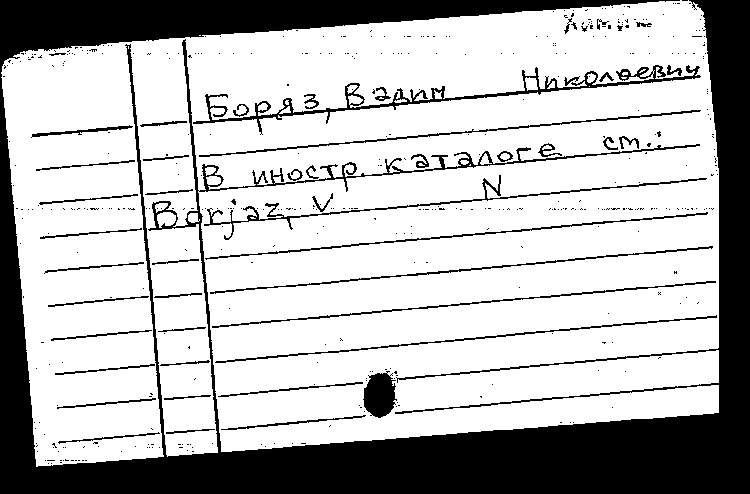 Химик
Боряз, Вадим Николаевич
В иностр. каталоге см.:
Borjaz, V N